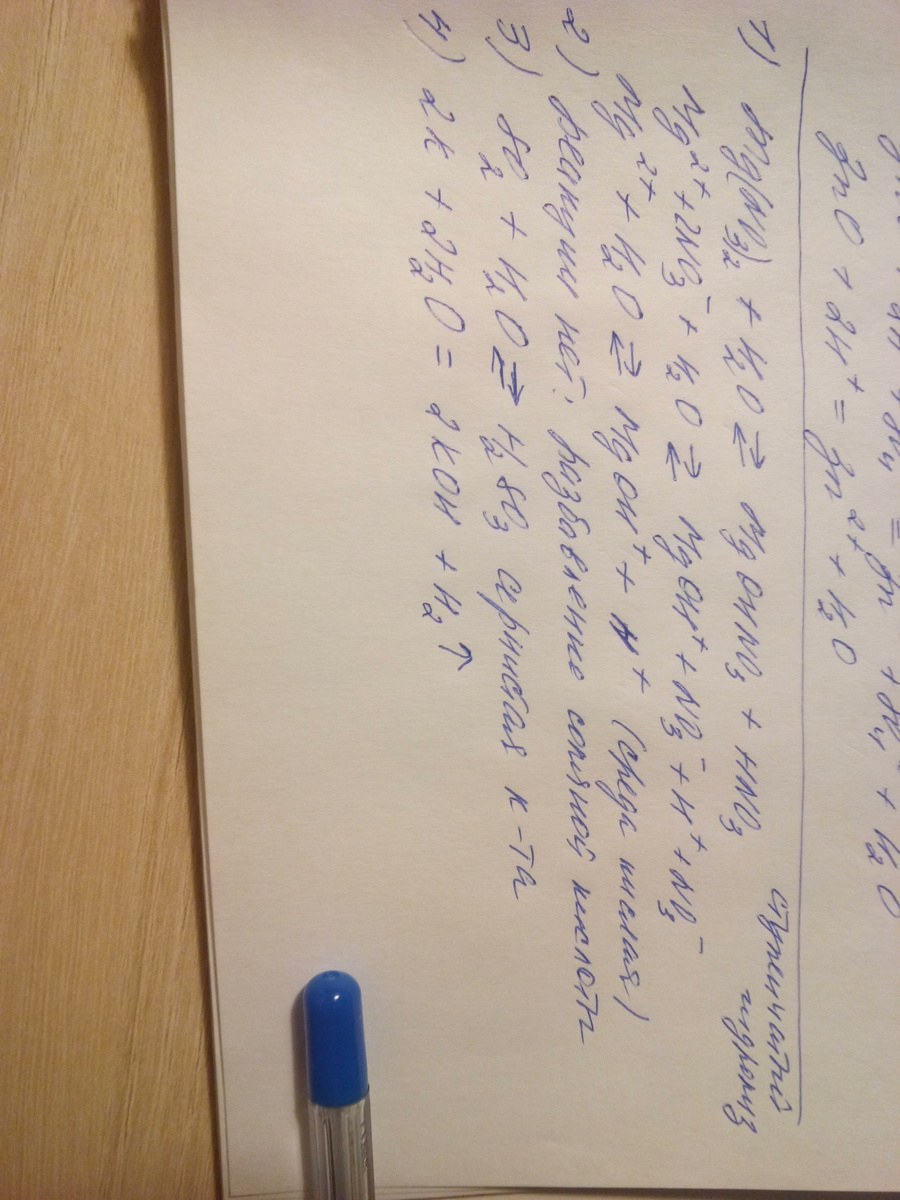 = Zn + SO₄ + H₂O
ZnO + 2H⁺ = Zn²⁺ + H₂O
ступенчатый гидролиз
1) Mg(NO₃)₂ + H₂O ⇄ MgOHNO₃ + HNO₃
Mg²⁺ + 2NO₃⁻ + H₂O ⇄ MgOH⁺ + NO₃⁻ + H⁺ + NO₃⁻
Mg²⁺ + H₂O ⇄ MgOH⁺ + H⁺ (среда кислая)
2) Реакции нет, разбавление соляной кислоты
3) SO₂ + H₂O ⇄ H₂SO₃ сернистая к-та
4) 2K + 2H₂O = 2KOH + H₂↑